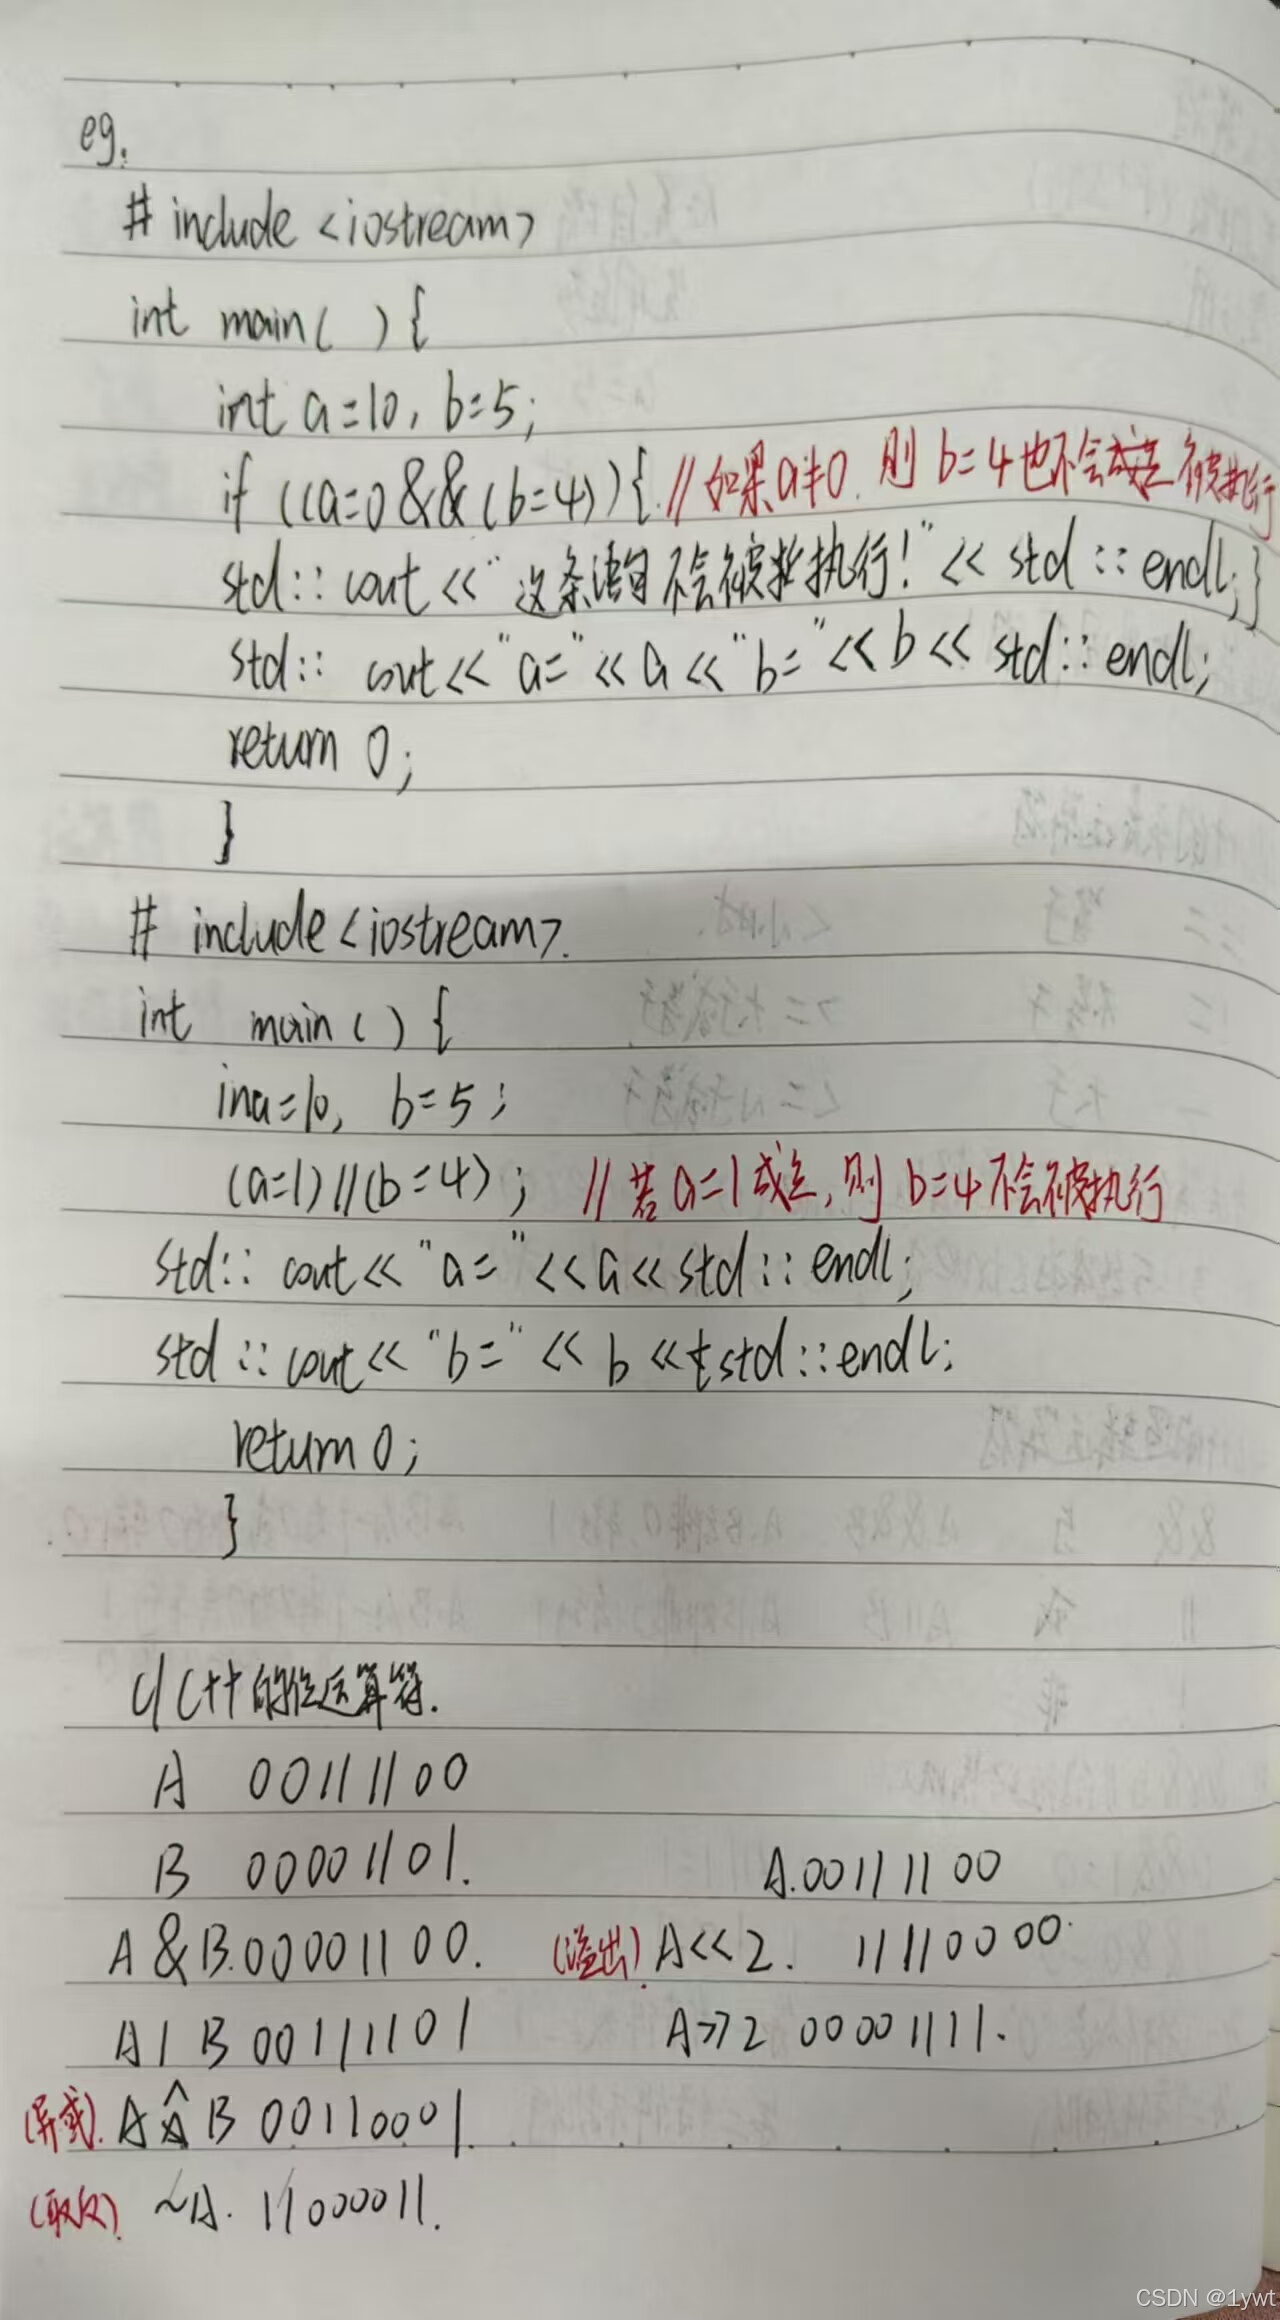 eg.
# include <iostream>
int main( ) {
int a=10, b=5;
if ((a=0 && (b=4)) { //如果a≠0, 则 b=4也不会成立 被执行
std:: cout << "这条语句不会被执行!" << std :: endl;}
std:: cout << "a=" << a << "b=" << b << std:: endl;
return 0;
}
# include <iostream>.
int main ( ) {
ina=10, b=5;
(a=1) || (b=4) ; // 若a=1成立, 则 b=4 不会被执行
std:: cout << "a=" << a << std :: endl;
std :: cout << "b=" << b << std :: endl;
return 0;
}
C/C++的位运算符.
A 00111100
B 00001101. A.00111100
A & B.00001100. (溢出) A<<2. 11110000.
A | B 00111101 A>>2 00001111.
(异或). A ^ B 00110001.
(取反) ~A. 11000011.
CSDN @1ywt